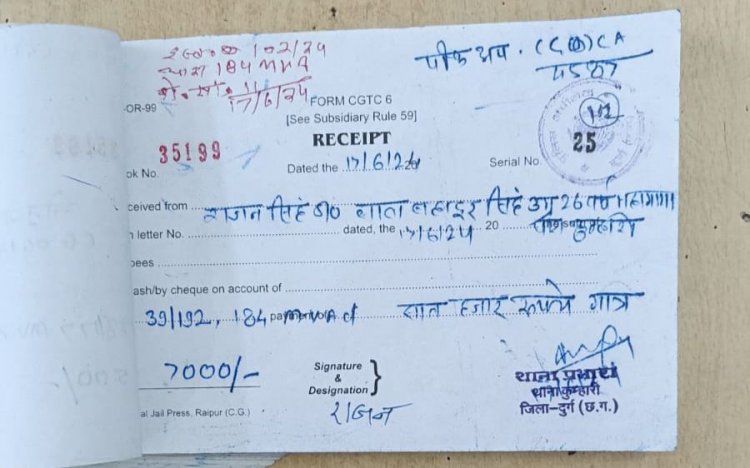 102/24
184 MVA
17/6/24
पीकअप. CA
OR-99
FORM CGTC 6
[See Subsidiary Rule 59]
RECEIPT
ok No. 35199
Dated the 17/6/24
Serial No. 25
102
ceived from राजन सिंह S/o लाल बहादुर सिंह उम्र 26
letter No. dated, the 17/6/24 20 कुम्हारी
pees
ash/by cheque on account of
39/192, 184 MVAct सात हजार रूपये मात्र
7000/-
Signature
&
Designation
राजन
थाना प्रभारी
थाना कुम्हारी
जिला-दुर्ग (छ.ग.)
al Jail Press, Raipur (C.G.)